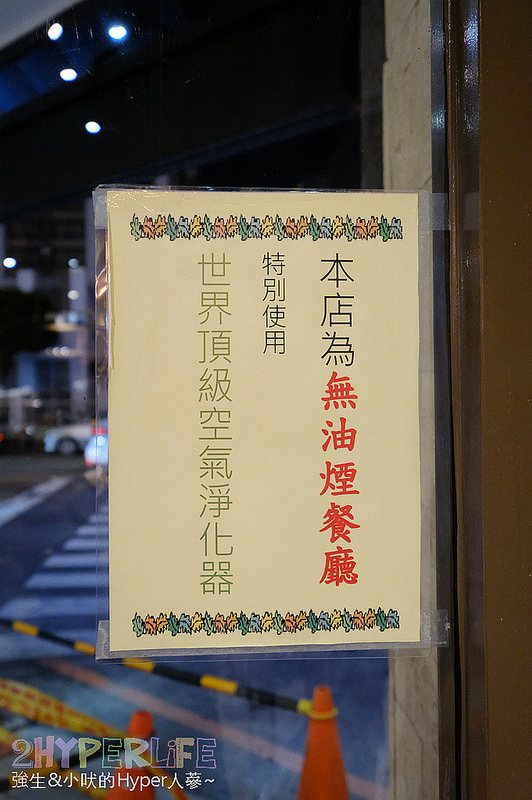 本店為無油煙餐廳
特別使用
世界頂級空氣淨化器
2HYPERLiFE
強生&小吠的Hyper人蔘~